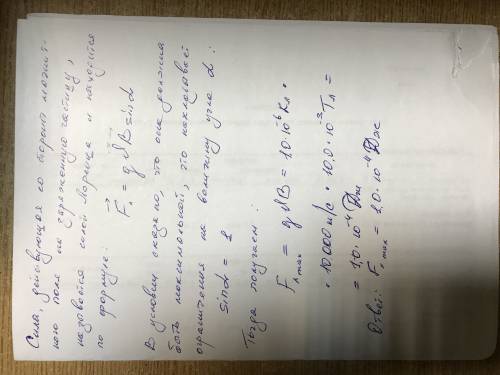 Сила, действующая со стороны магнит-
ного поля на заряженную частицу,
называется силой Лоренца и находится
по формуле:
F⃗л = qϑB sinα
В условии сказано, что она должна
быть максимальной, это накладывает
ограничения на величину угла α:
sinα = 1
Тогда получаем:
Fл max = qϑB = 10·10⁻⁶ Кл ·
· 10000 м/с · 10.0·10⁻³ Тл =
= 1,0·10⁻⁴ Дж
Ответ: Fл max = 1,0·10⁻⁴ Дж